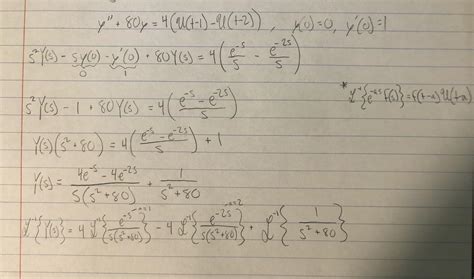 y'' + 80y = 4(𝒰(t-1) - 𝒰(t-2)) , y(0)=0, y'(0)=1
s²Y(s) - sy(0) - y'(0) + 80Y(s) = 4(e^{-s}/s - e^{-2s}/s)
0 1
s²Y(s) - 1 + 80Y(s) = 4((e^{-s} - e^{-2s})/s)
* ℒ⁻¹{e^{-as}F(s)} = f(t-a)𝒰(t-a)
Y(s)(s²+80) = 4((e^{-s} - e^{-2s})/s) + 1
Y(s) = (4e^{-s} - 4e^{-2s})/(s(s²+80)) + 1/(s²+80)
ℒ⁻¹{Y(s)} = 4ℒ⁻¹{e^{-s}/(s(s²+80))} - 4ℒ⁻¹{e^{-2s}/(s(s²+80))} + ℒ⁻¹{1/(s²+80)}
a=1 a=2